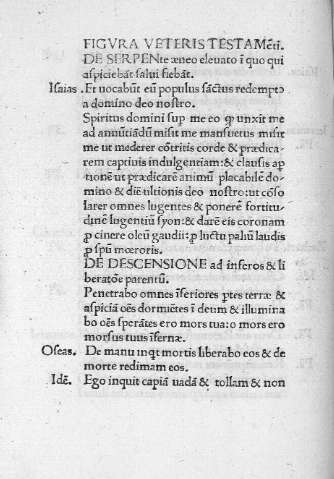 FIGVRA VETERIS TESTAMēti.
DE SERPENte æneo eleuato ĩ quo qui
aspiciebãt salui fiebãt.
Isaias. Et uocabũt eũ populus sãctus redempto
a domino deo nostro.
Spiritus domini sup me eo ꝙ unxit me
ad annũtiãdũ misit me mansuetus misit
me ut mederer cõtritis corde & prædica-
rem captiuis indulgentiam: & clausis ap
tionē ut prædicarē animũ placabilē do-
mino & diē ultionis deo nostro: ut cõso
larer omnes lugentes & ponerē fortitu-
dinē lugentiũ syon: & darē eis coronam
ꝓ cinere oleũ gaudii: ꝓ luctu paliũ laudis
ꝓ spũ mœroris.
DE DESCENSIONE ad inferos & li
beratõe parentũ.
Penetrabo omnes ĩferiores ptes terræ &
aspiciã oēs dormiētes ĩ deum & illumina
bo oēs sperãtes ero mors tua: o mors ero
morsus tuus ĩfernæ.
Oseas. De manu inqt mortis liberabo eos & de
morte redimam eos.
Idē. Ego inquit capiã uadã & tollam & non